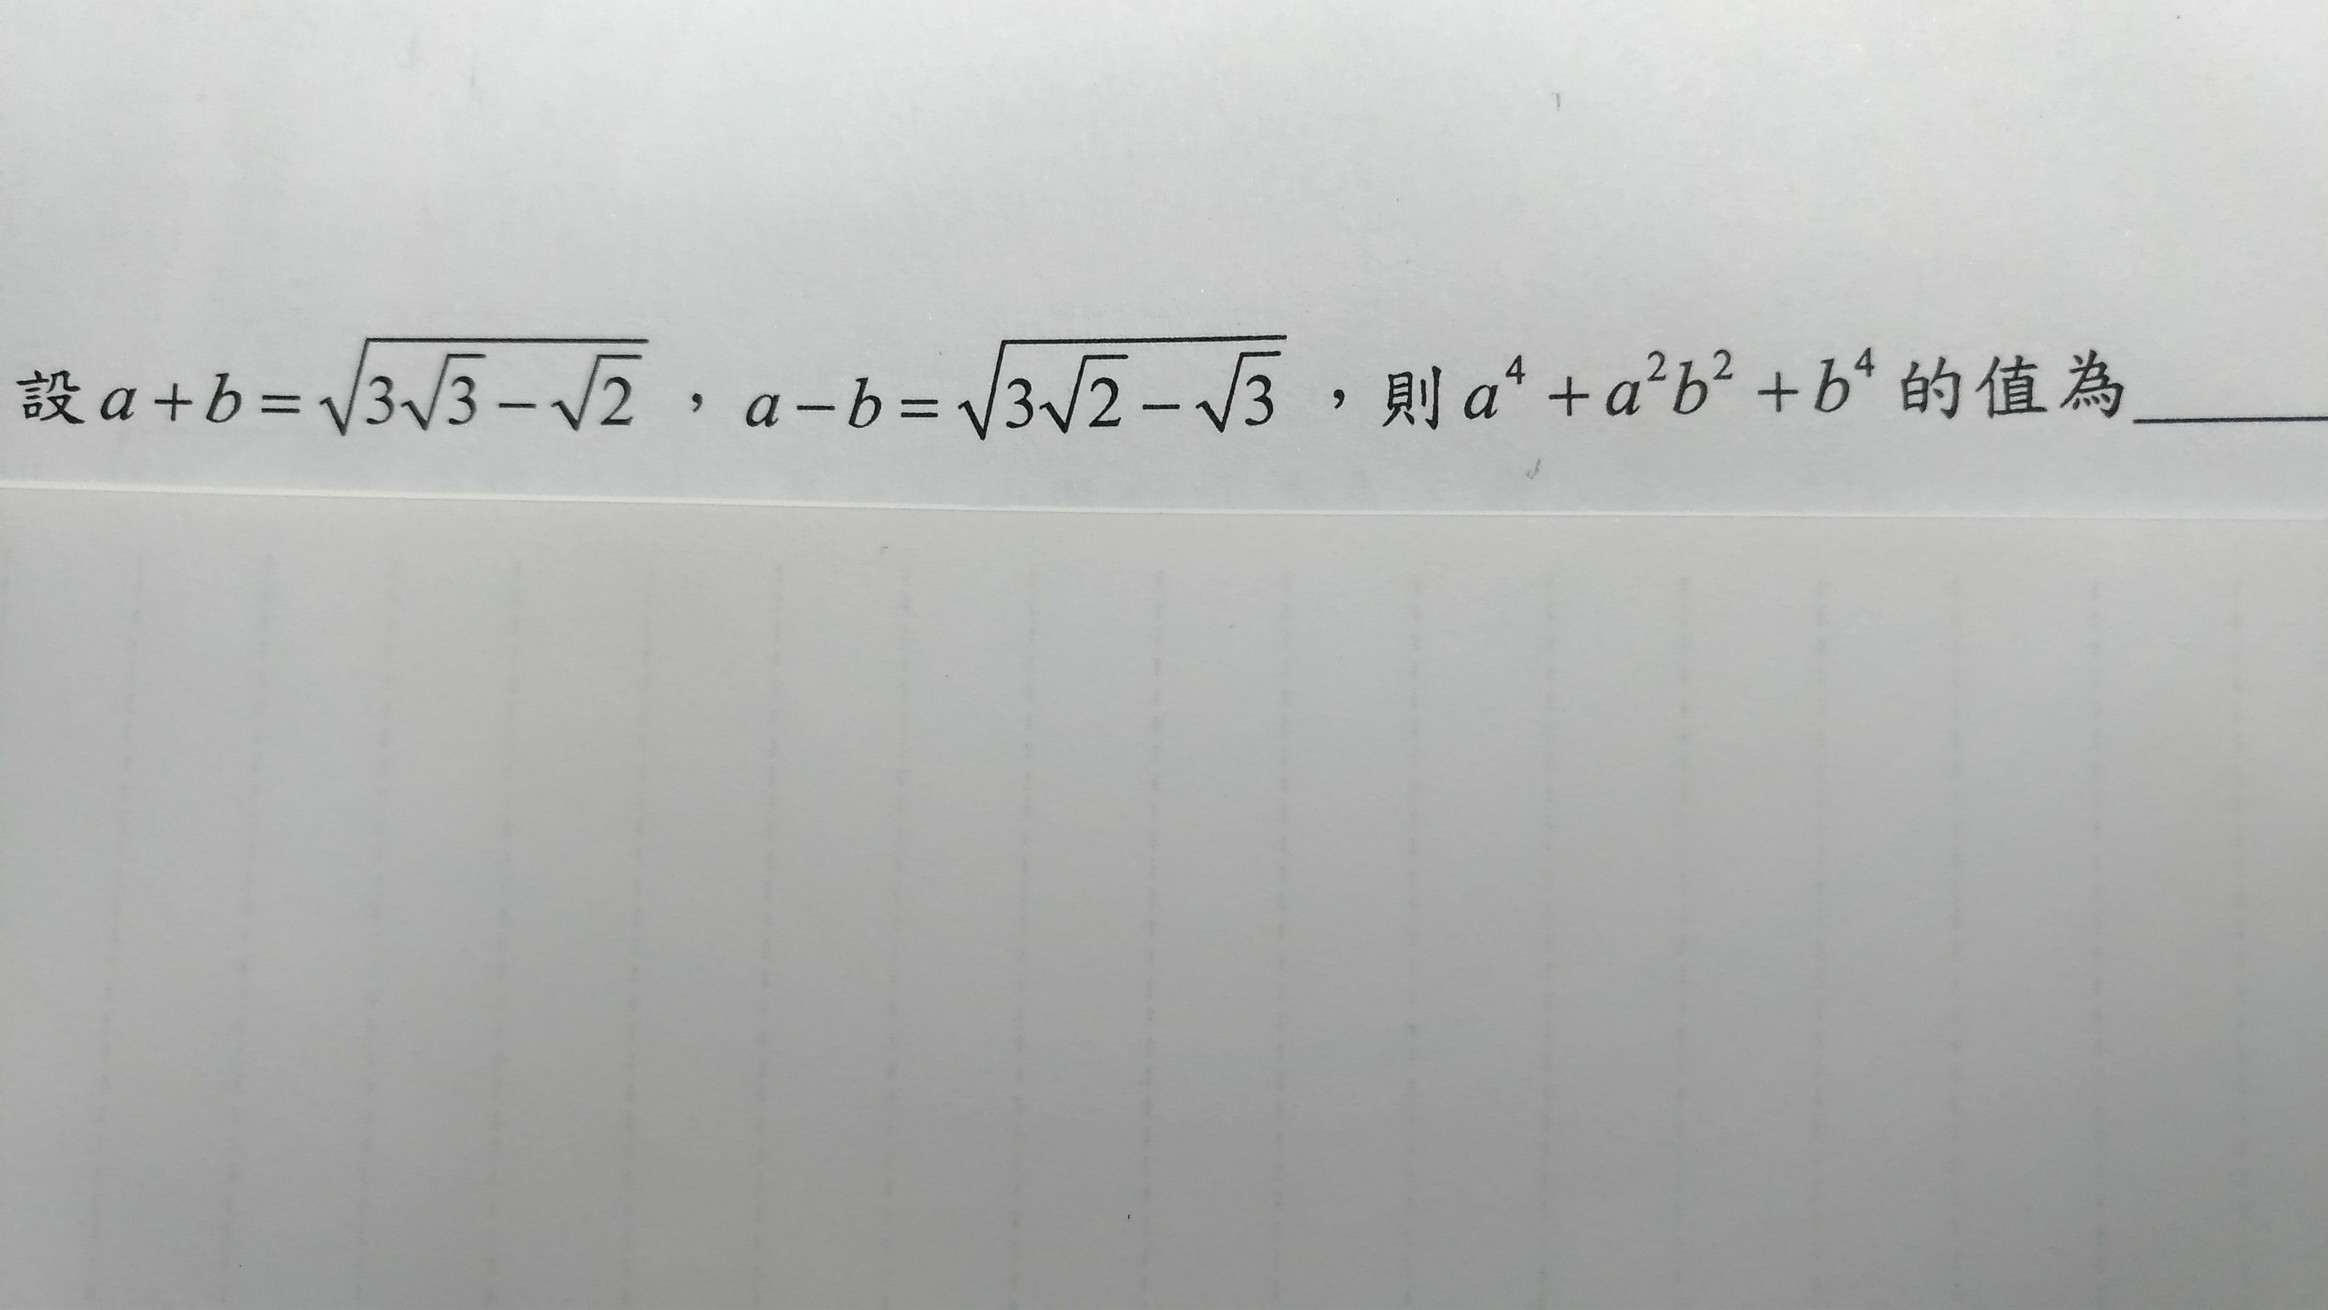 設 a + b = √(3√3 − √2) ， a − b = √(3√2 − √3) ，則 a⁴ + a²b² + b⁴ 的值為______